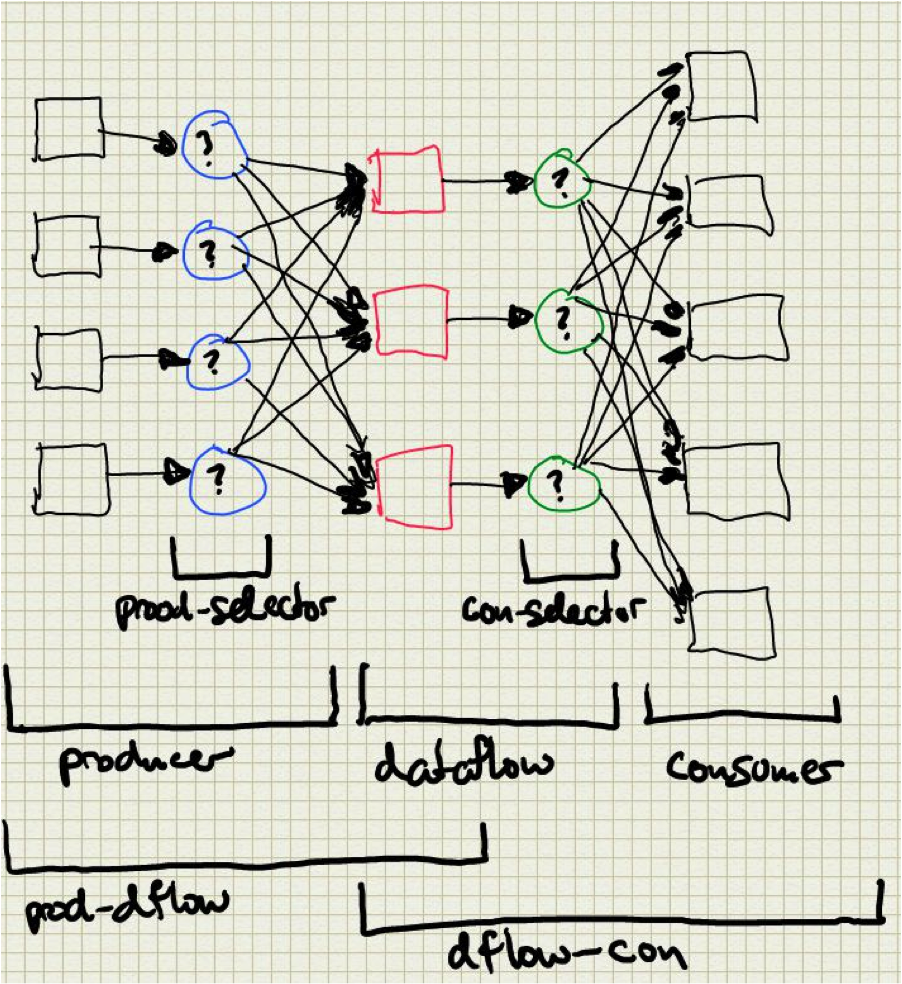 ?
?
?
?
?
?
?
prod-selector
con-selector
producer
dataflow
consumer
prod-dflow
dflow-con